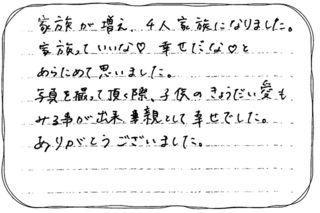 家族が増え、4人家族になりました。
家族っていいな♡ 幸せだな♡と
あらためて思いました。
写真を撮って頂く際、子供のきょうだい愛も
みる事が出来 親として幸せでした。
ありがとうございました。